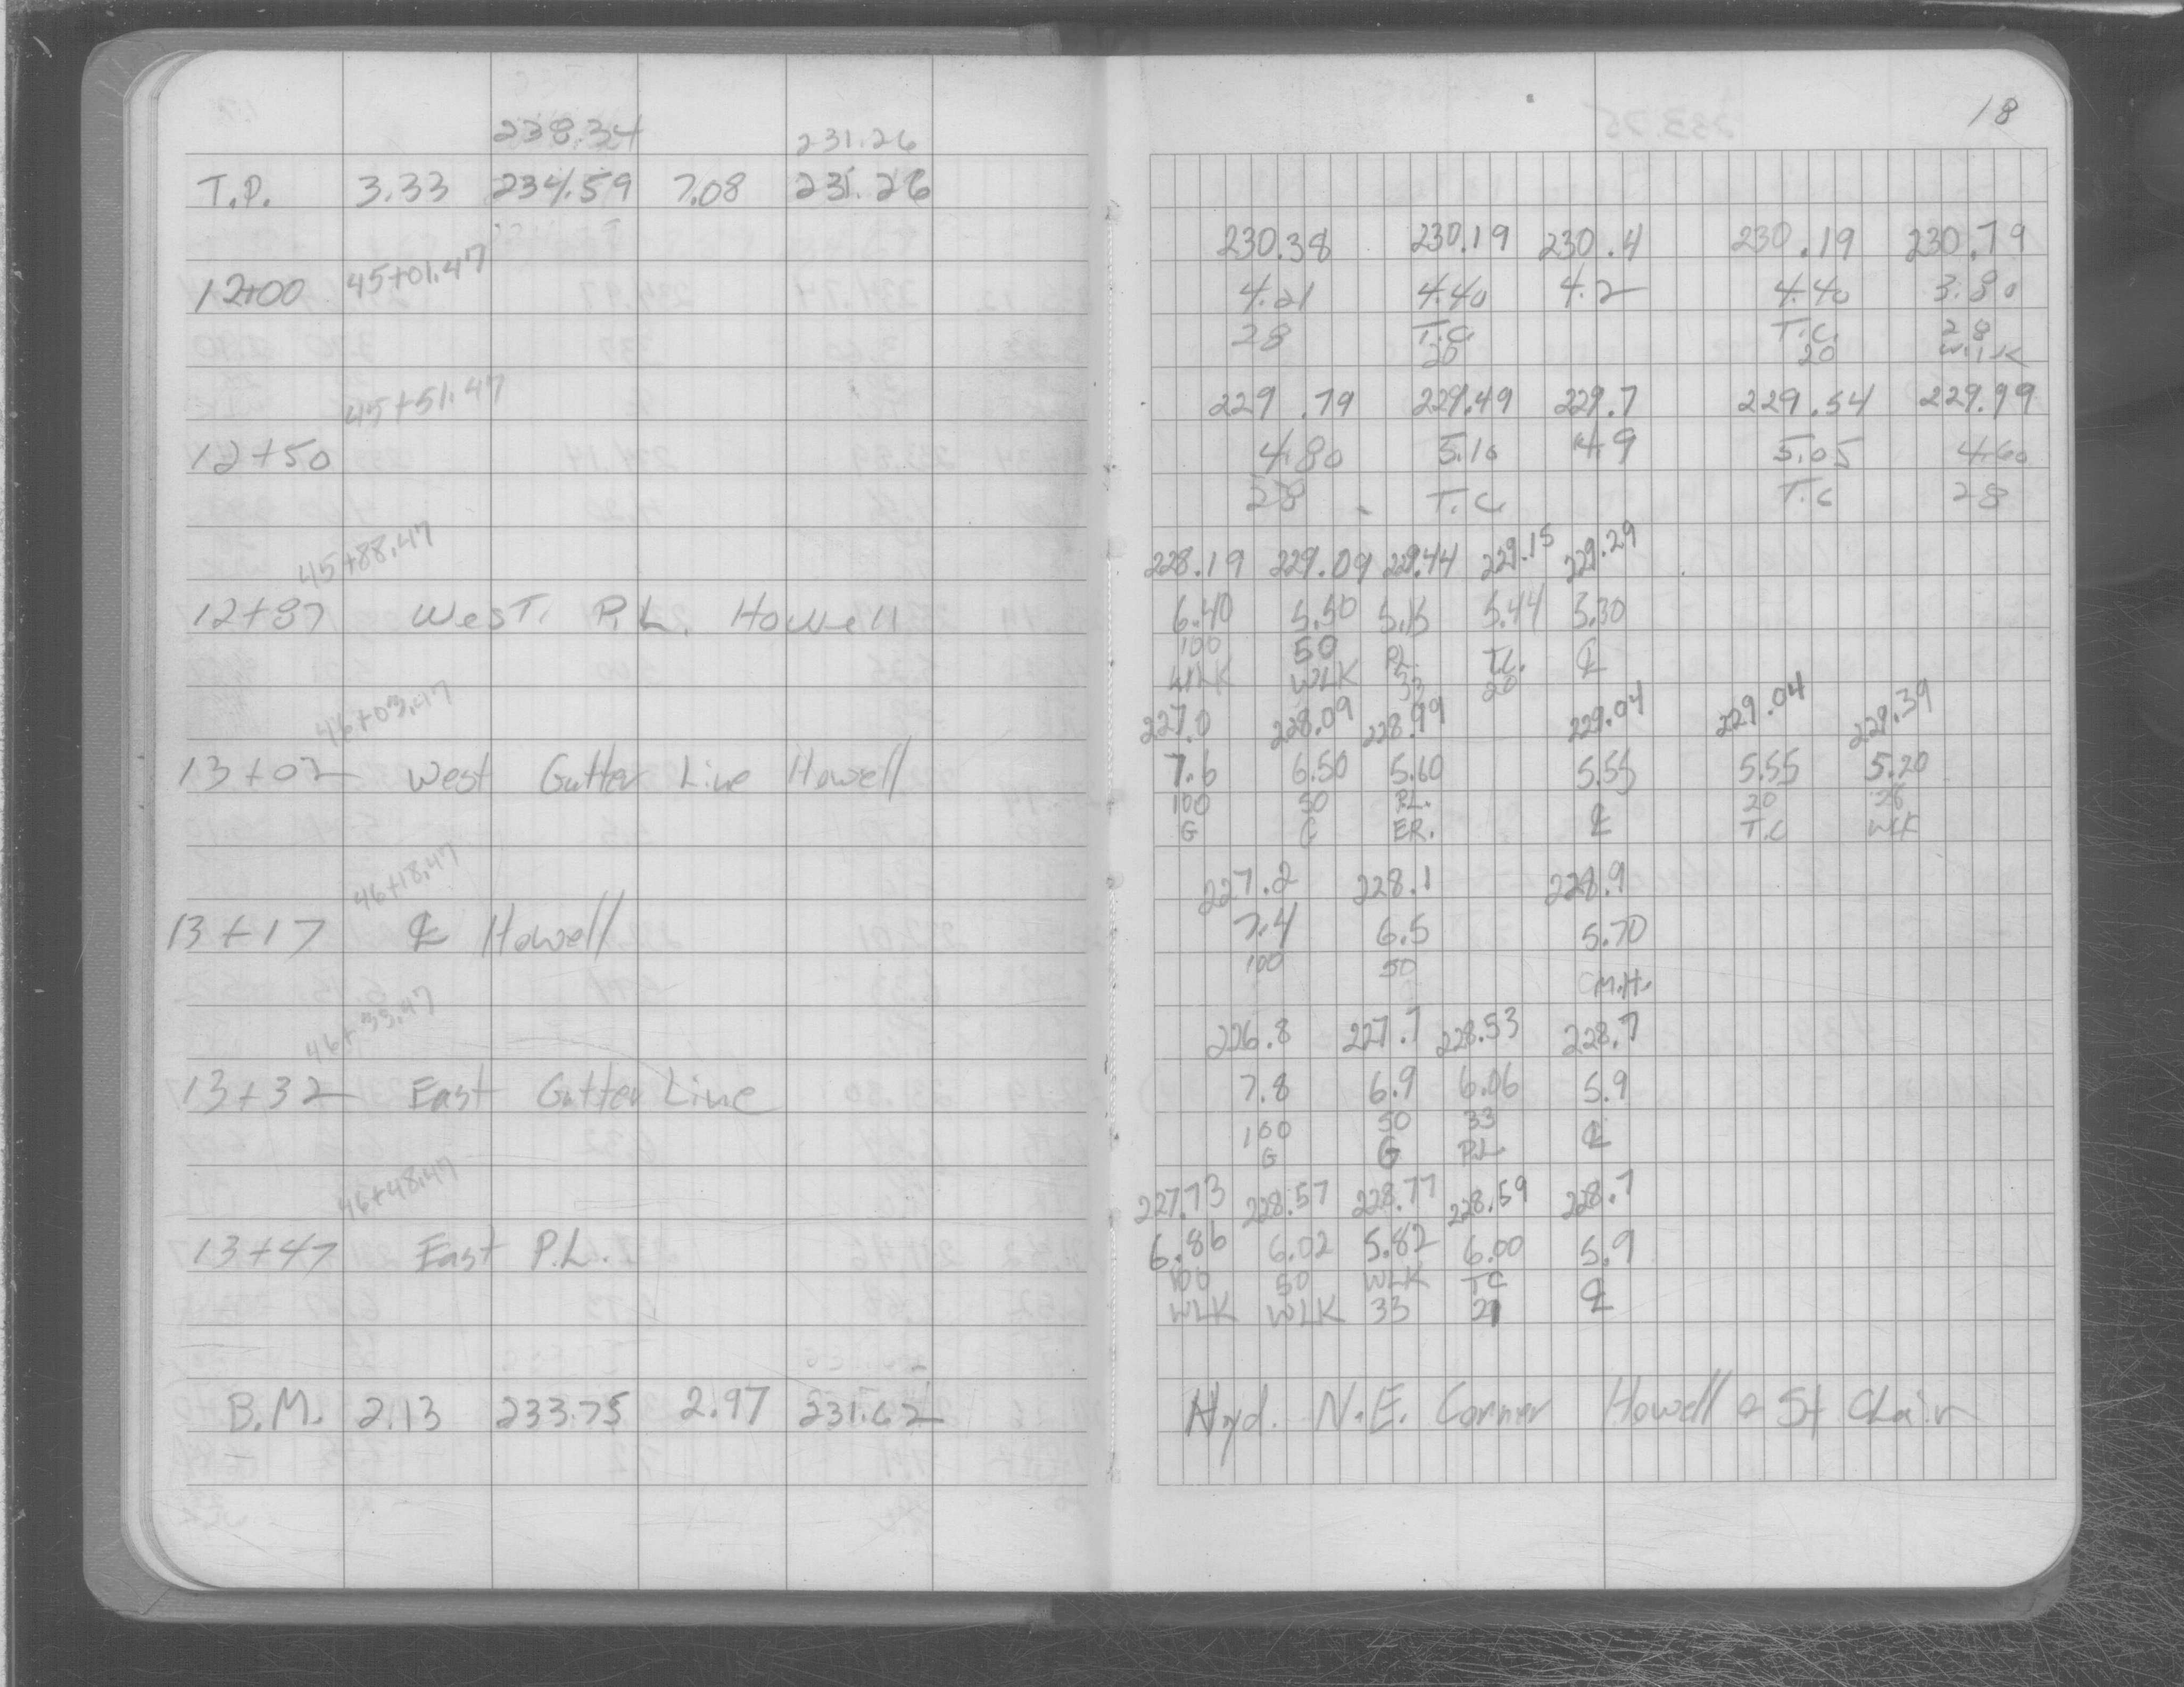 238.34 231.26
T.P. 3.33 234.59 7.08 231.26
45+01.47
12+00
45+51.47
12+50
45+88.47
12+87 West. P.L. Howell
46+03.47
13+02 West Gutter Line Howell
46+18.47
13+17 ℄ Howell
46+33.47
13+32 East Gutter Line
46+48.47
13+47 East P.L.
B.M. 2.13 233.75 2.97 231.62
18
230.38 230.19 230.4 230.19 230.79
4.21 4.40 4.2 4.40 3.80
28 T.C. T.C. 28
20 20 WLK
229.79 229.49 229.7 229.54 229.99
4.80 5.10 4.9 5.05 4.60
28 T.C. T.C 28
228.19 229.09 229.44 229.15 229.29
6.40 5.50 5.15 5.44 5.30
100 50 P.L. T.C. ℄
WLK WLK 33 20
227.0 228.09 228.99 229.04 229.04 229.39
7.6 6.50 5.60 5.55 5.55 5.20
100 50 P.L. 20 28
G G ER. ℄ T.C WLK
227.2 228.1 228.9
7.4 6.5 5.70
100 50
M.H.
226.8 227.7 228.53 228.7
7.8 6.9 6.06 5.9
100 50 33 ℄
G G P.L.
227.73 228.57 228.77 228.59 228.7
6.86 6.02 5.82 6.00 5.9
100 50 WLK TC ℄
WLK WLK 33 21
Hyd. N.E. Corner Howell & St Clair